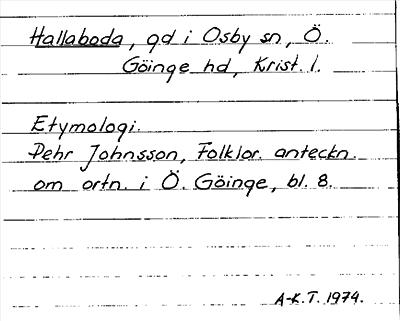 Hallaboda, gd i Osby sn, Ö.
Göinge hd, Krist. l.
Etymologi.
Pehr Johnsson, Folklor. anteckn.
om ortn. i Ö. Göinge, bl. 8.
A-K.T. 1974.